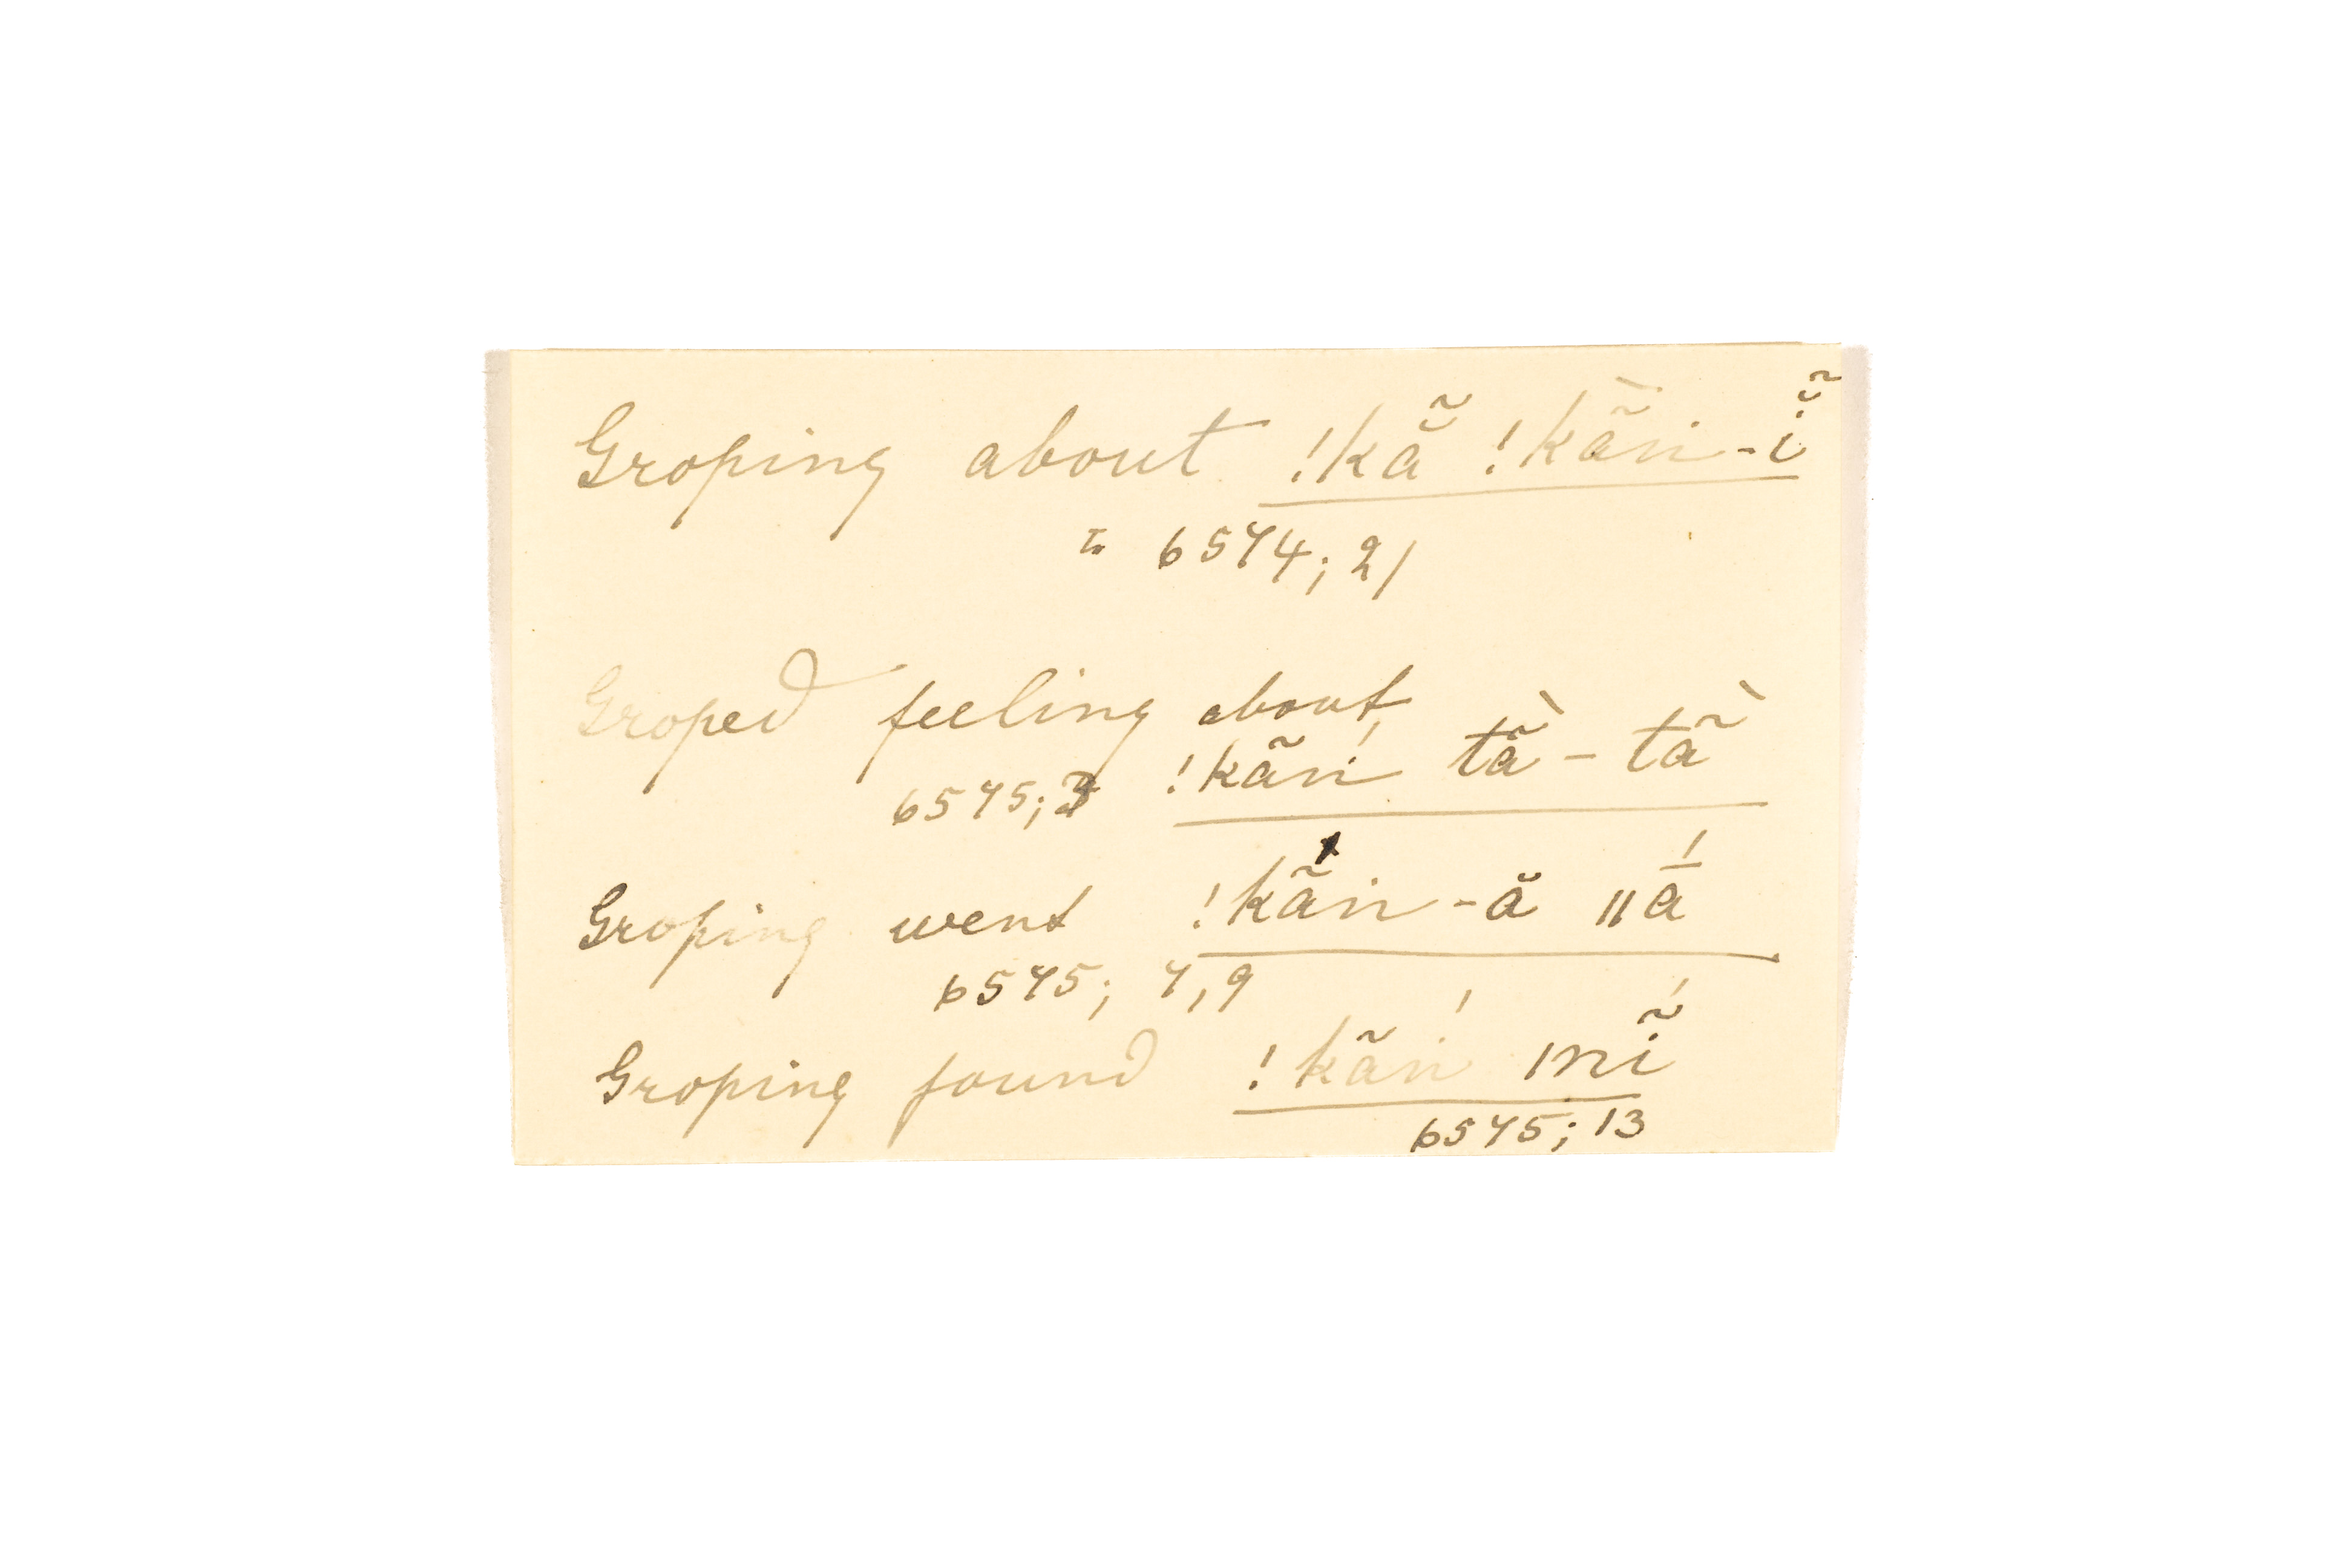 Groping about !kã̆ !kã̀ṅ-ĩ̆
= 6574; 21
Groped feeling about
6575; 3 !kã́ṅ tã̀ - tã̀
Groping went !kã́ṅ-ă ǁā́
6575; 7, 9
Groping found !kã́ṅ ǀnĩ́
6575; 13